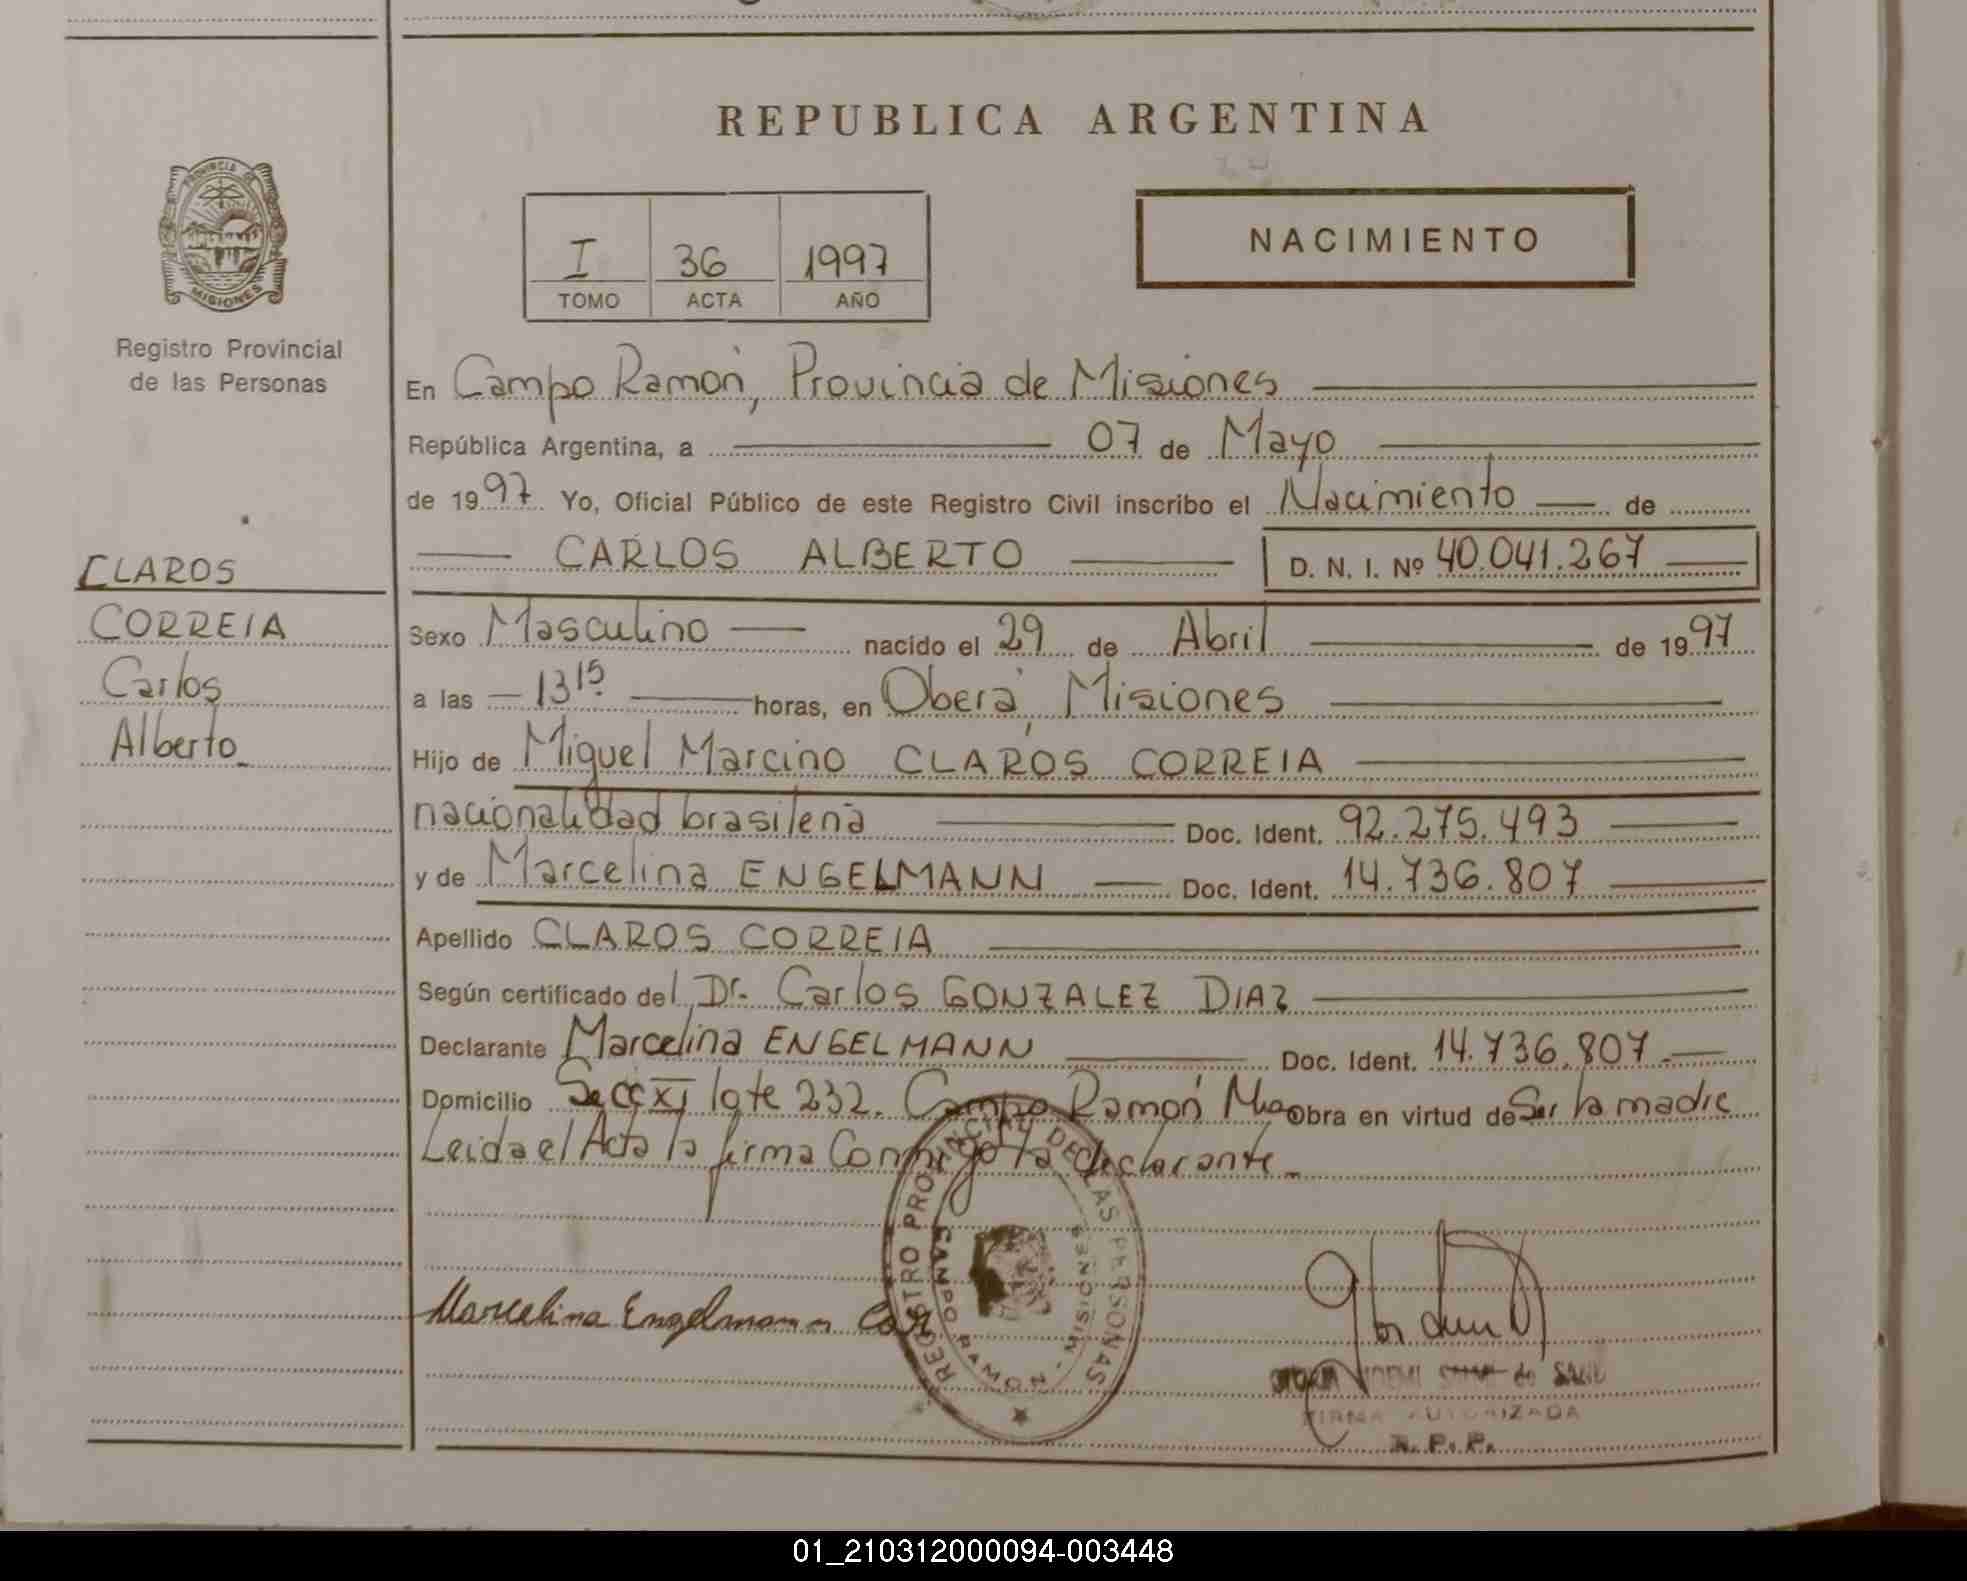 REPUBLICA ARGENTINA
PROVINCIA DE
MISIONES
Registro Provincial
de las Personas
I 36 1997
TOMO ACTA AÑO
NACIMIENTO
CLAROS
CORREIA
Carlos
Alberto
En Campo Ramón, Provincia de Misiones
República Argentina, a 07 de Mayo
de 1997 Yo, Oficial Público de este Registro Civil inscribo el Nacimiento de
CARLOS ALBERTO D. N. I. Nº 40.041.267
Sexo Masculino nacido el 29 de Abril de 1997
a las 13 15 horas, en Oberá, Misiones
Hijo de Miguel Marcino CLAROS CORREIA
nacionalidad brasileña Doc. Ident. 92.275.493
y de Marcelina ENGELMANN Doc. Ident. 14.736.807
Apellido CLAROS CORREIA
Según certificado del Dr. Carlos GONZALEZ DIAZ
Declarante Marcelina ENGELMANN Doc. Ident. 14.736.807.
Domicilio Secc XI lote 232. Campo Ramón Mnes Obra en virtud de Ser la madre
Leida el Acta la firma Conmigo la declarante.
REGISTRO PROVINCIAL DE LAS PERSONAS
CAMPO RAMON - MISIONES
Marcelina Engelmann
FIRMA AUTORIZADA
R. P. P.
01_210312000094-003448